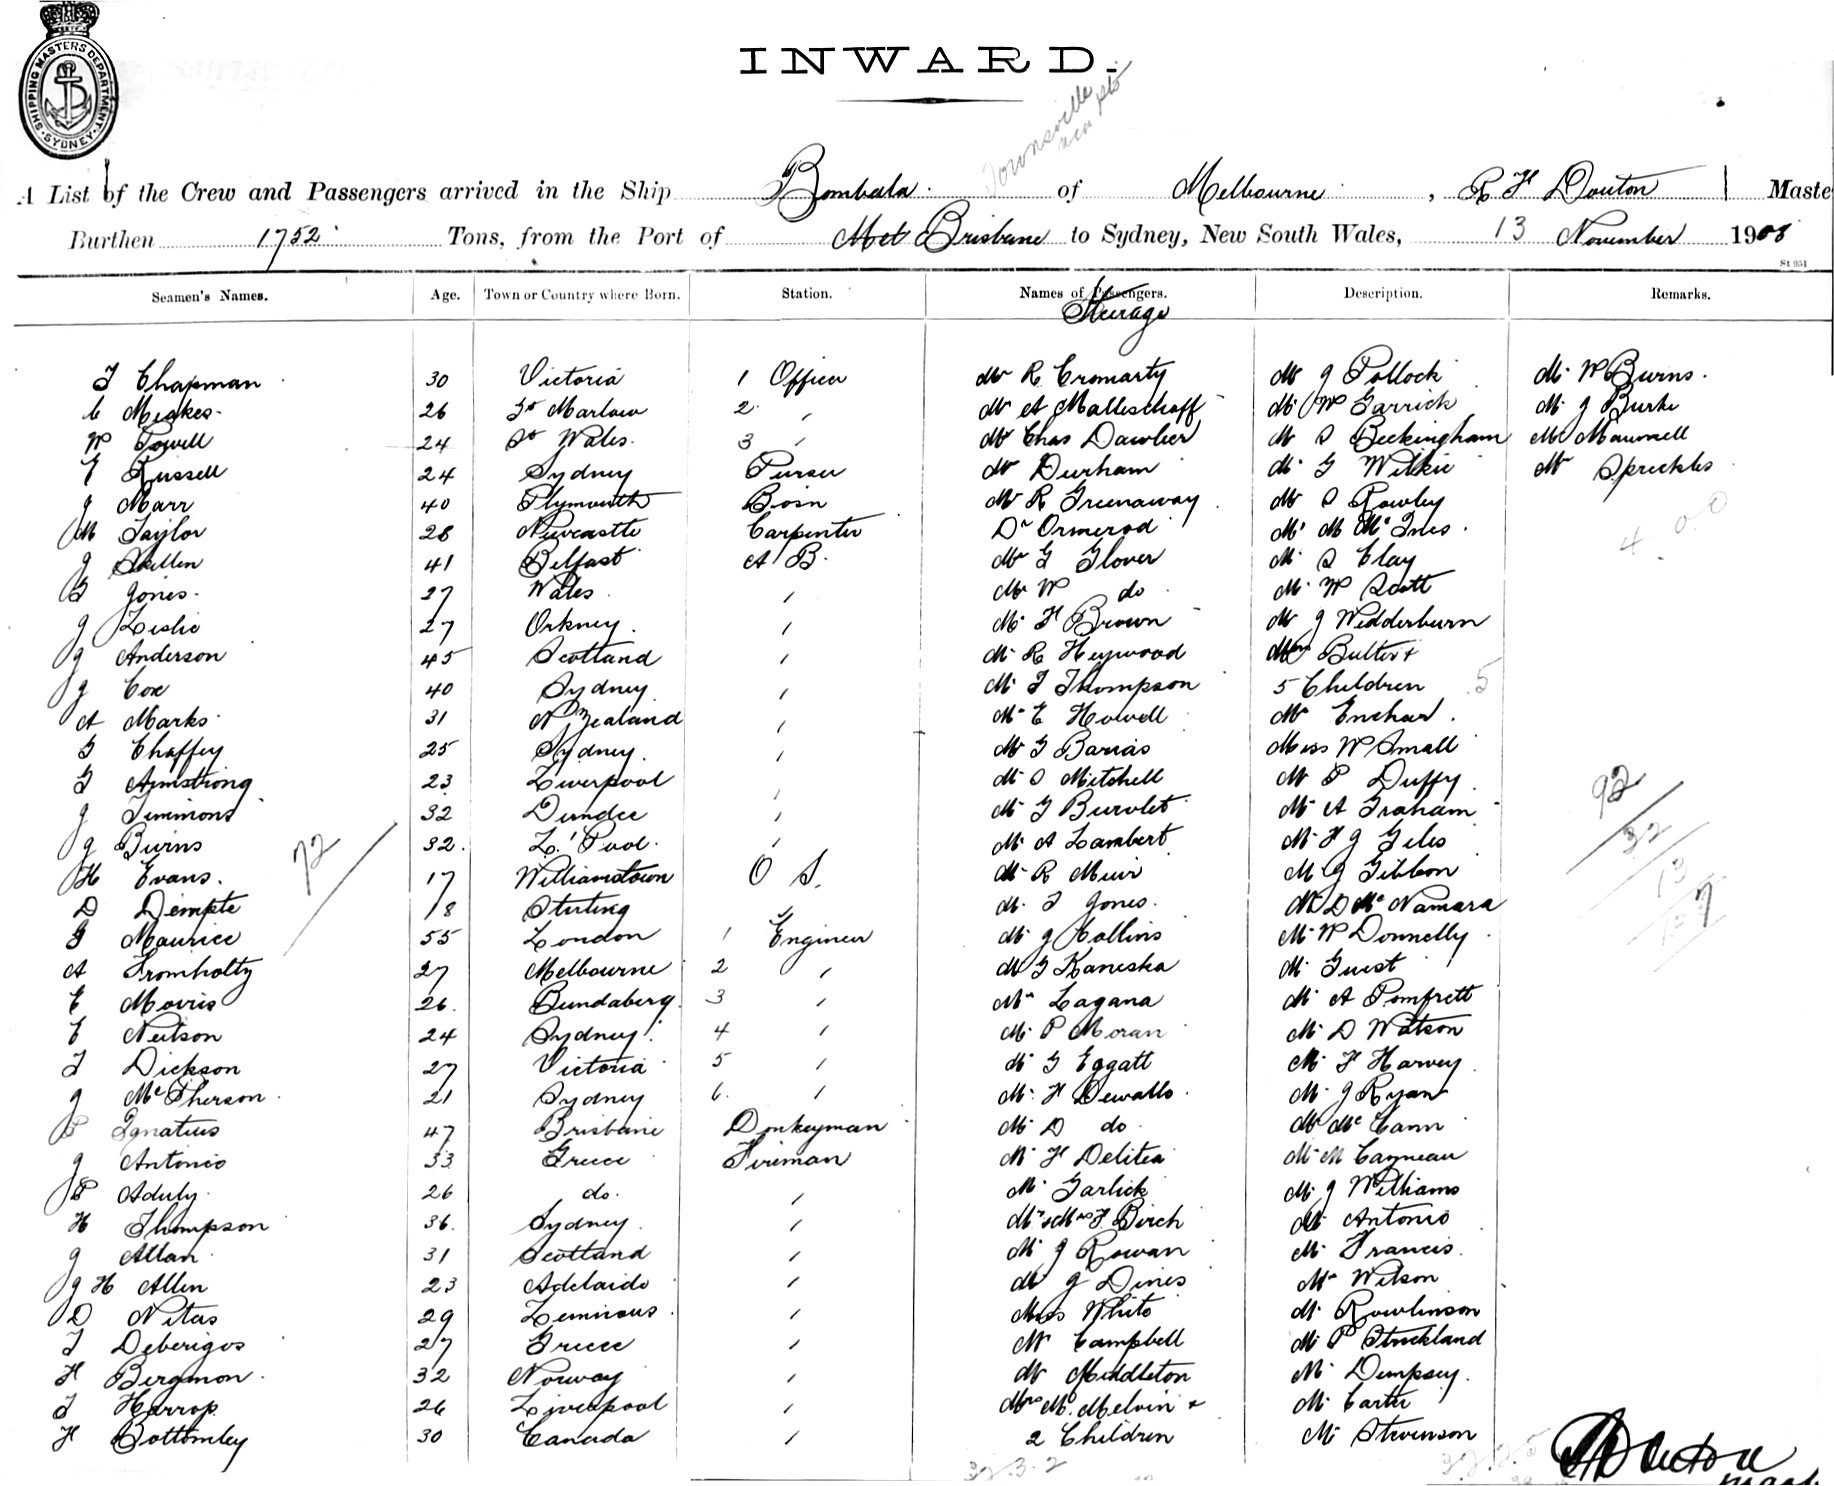 SHIPPING MASTERS DEPARTMENT. SYDNEY.
INWARD.
Townsville
A List of the Crew and Passengers arrived in the Ship Bombala of Melbourne, R H Douton Maste
Burthen 1752 Tons, from the Port of Brisbane to Sydney, New South Wales, 13 November 1908
St 951
Seamen's Names. Age. Town or Country where Born. Station. Names of Passengers. Description. Remarks.
Steerage
T Chapman 30 Victoria 1 Officer Mr R Cromarty Mr J Pollock Mr W Burns
C Meakes 26 Gt Marlow 2 " Mr A Mallischoff Mr W Garrick Mr J Burke
W Powell 24 So Wales 3 " Mr Chas Dawber Mr S Beckingham Mr Maunsell
E Russell 24 Sydney Purser Mr Durham Mr G Wilkie Mr Spreckles
J Marr 40 Plymouth Bosn Mr R Greenaway Mr S Rowley
M Taylor 28 Newcastle Carpenter Dr Ormerod Mr M McInes
J Skillen 41 Belfast A B. Mr G Glover Mr S Clay
G Jones 27 Wales " Mr W do Mr W Scott
J Leslie 27 Orkney " Mr H Brown Mr J Wedderburn
J Anderson 45 Scotland " Mr R Heywood Mrs Butler +
J Cox 40 Sydney " Mr T Thompson 5 Children 5
A Marks 31 N Zealand " Mr E Howell Mr
G Chaffey 25 Sydney " Mr G Barras Miss W Small
G Armstrong 23 Liverpool " Mr S Mitchell Mr P Duffy
J Timmons 32 Dundee " Mr G Burvlet Mr A Graham
J Burns 32 L'Pool " Mr A Lambert Mr H J Giles
H Evans 17 Williamstown O S. Mr R Muir Mr J Gibbon
D Dempte 18 Stirling Mr T Jones Mr D McNamara
G Maurice 55 London 1 Engineer Mr J Hollins Mr W Donnelly
A Fromholtz 27 Melbourne 2 " Mr G Kaneska Mr Guest
E Morris 26 Bundaberg 3 " Mr Lagana Mr A Pomfrett
E Neilson 24 Sydney 4 " Mr P Moran Mr D Watson
T Dickson 27 Victoria 5 " Mr G Eggatt Mr H Harvey
J McPherson 21 Sydney 6 " Mr H Dewalls Mr J Ryan
P Ignatius 47 Brisbane Donkeyman Mr D do Mr McCann
J Antonio 33 Greece Fireman Mr H Delitea Mr M Cayneau
P Aduly 26 do " Mr Garlick Mr J Williams
H Thompson 36 Sydney " Mr & Mrs F Birch Mr Antonio
J Allan 31 Scotland " Mr J Rowan Mr Francis
J H Allen 23 Adelaide " Mr J Dines Mr Wilson
D Nitas 29 Lemnous " Miss White Mr Rowlinson
T Deberigos 27 Greece " Mr Campbell Mr P Strickland
H Bergmon 32 Norway " Mr Middleton Mr Dempsey
T Harrop 26 Liverpool " Mrs M. Melvin + Mr Carter
H Bottomley 30 Canada " 2 Children Mr Stevenson
72
92
32
13
32.3.2